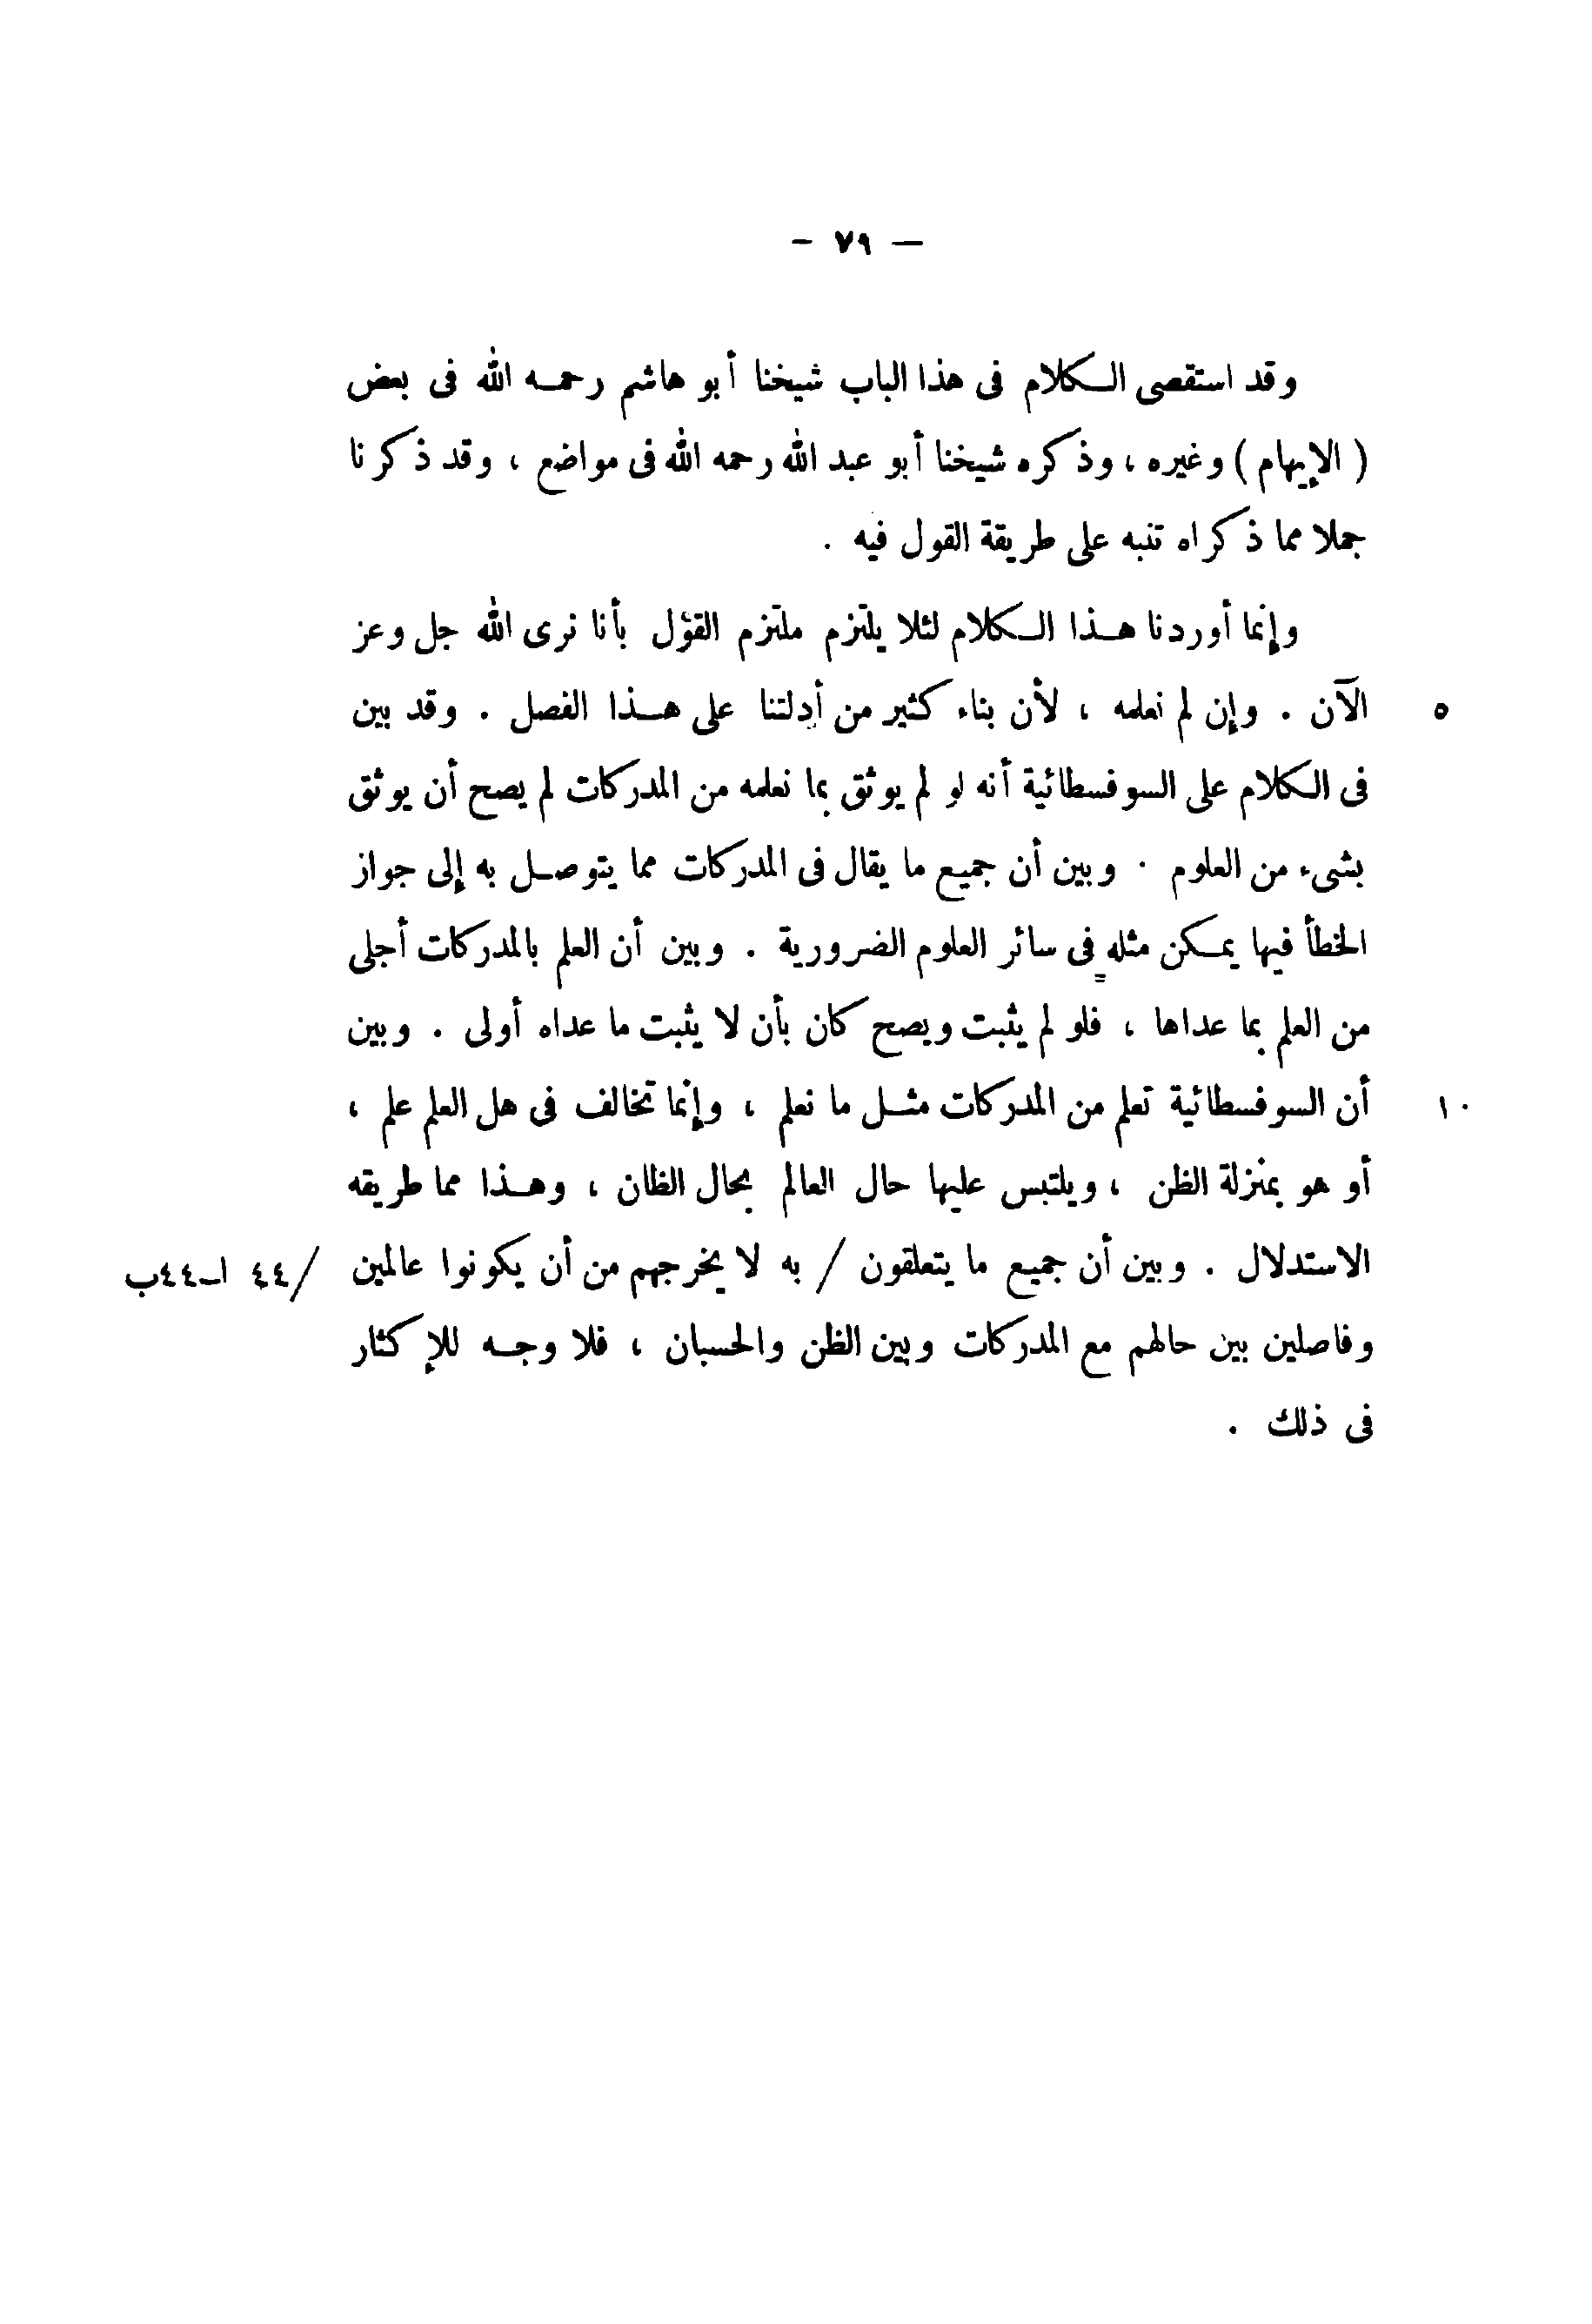 — ٧٩ —
وقد استقصى الكلام فى هذا الباب شيخنا أبو هاشم رحمه الله فى بعض
( الإيهام ) وغيره ، وذكره شيخنا أبو عبد الله رحمه الله فى مواضع ، وقد ذكرنا
جملا مما ذكراه تنبه على طريقة القول فيه .
وإنما أوردنا هذا الكلام لئلا يلتزم ملتزم القؤل بأنا نرى الله جل وعز
الآن . وإن لم نعلمه ، لأن بناء كثير من أدلتنا على هذا الفصل . وقد بين ٥
فى الكلام على السوفسطائية أنه لو لم يوثق بما نعلمه من المدركات لم يصح أن يوثق
بشىء من العلوم . وبين أن جميع ما يقال فى المدركات مما يتوصل به إلى جواز
الخطأ فيها يمكن مثله فى سائر العلوم الضرورية . وبين أن العلم بالمدركات أجلى
من العلم بما عداها ، فلو لم يثبت ويصح كان بأن لا يثبت ما عداه أولى . وبين
أن السوفسطائية تعلم من المدركات مثل ما نعلم ، وإنما تخالف فى هل العلم علم ، ١٠
أو هو بمنزلة الظن ، ويلتبس عليها حال العالم بحال الظان ، وهذا مما طريقه
الاستدلال . وبين أن جميع ما يتعلقون / به لا يخرجهم من أن يكونوا عالمين /٤٤ ا-٤٤ب
وفاصلين بين حالهم مع المدركات وبين الظن والحسبان ، فلا وجه للإكثار
فى ذلك .